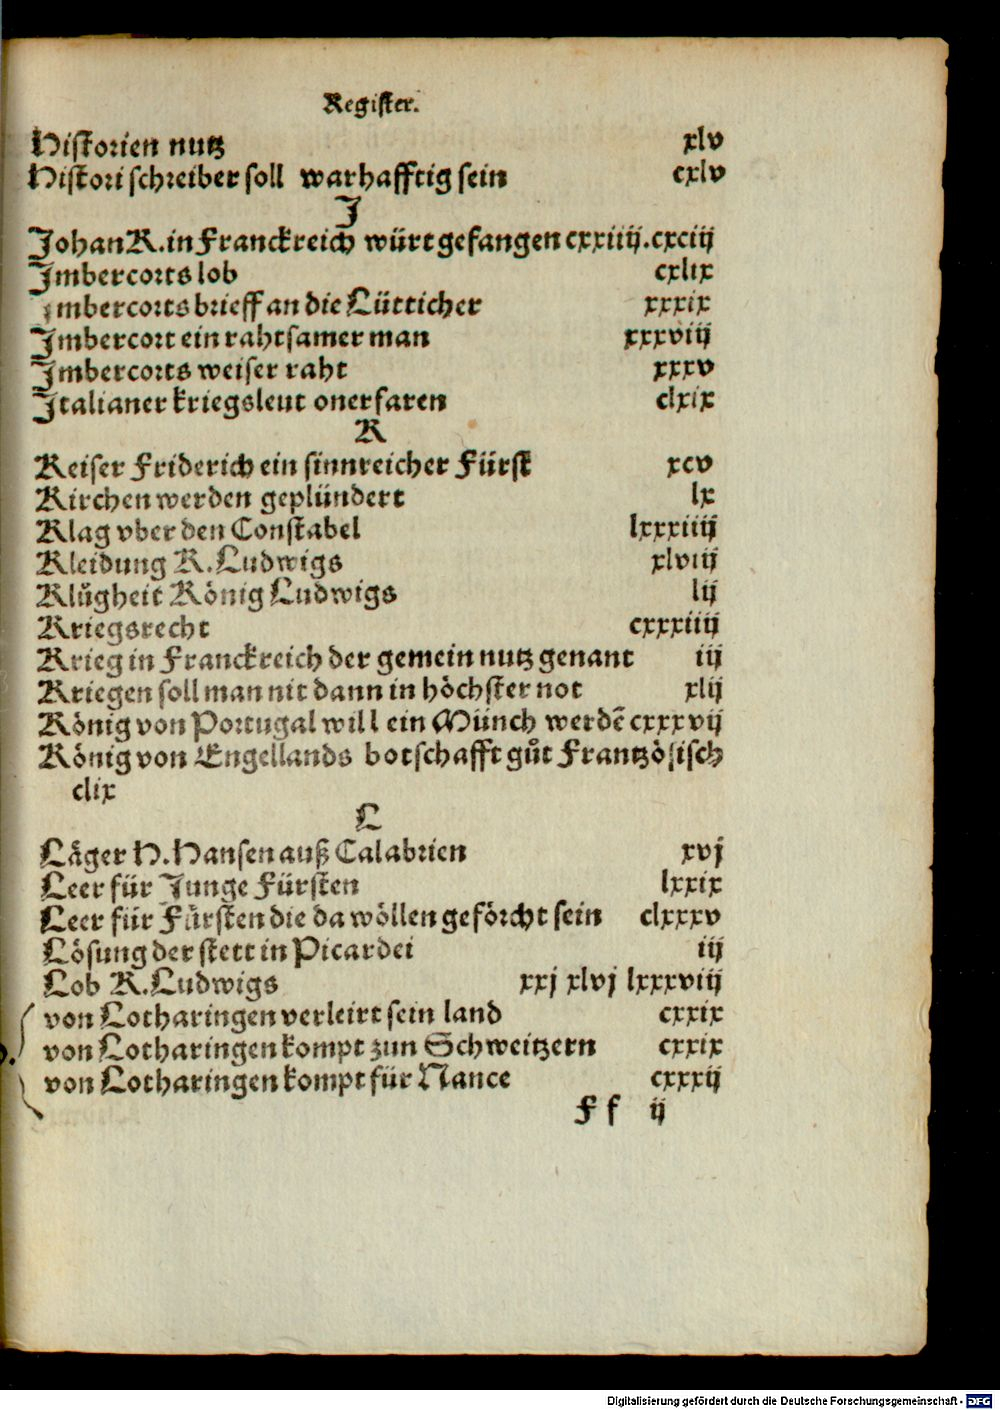 Register.
Historien nutz xlv
Histori schreiber soll warhafftig sein cxlv
J
Johan K. in Franckreich würt gefangen cxxiiij. cxciij
Jmbercorts lob cxlix
Jmbercorts brieff an die Lütticher xxxix
Jmbercort ein rahtsamer man xxxviij
Jmbercorts weiser raht xxxv
Jtalianer kriegsleut onerfaren clxix
K
Keiser Friderich ein sinnreicher Fürst xcv
Kirchen werden geplündert lx
Klag vber den Constabel lxxxiiij
Kleidung K. Ludwigs xlviij
Klůgheit König Ludwigs lij
Kriegsrecht cxxxiiij
Krieg in Franckreich der gemein nutz genant iij
Kriegen soll man nit dann in höchster not xlij
König von Portugal will ein Münch werdē cxxxvij
König von Engellands botschafft gůt Frantzösisch
clix
L
Läger H. Hansen auß Calabrien xvj
Leer für Junge Fürsten lxxix
Leer für Fürsten die da wöllen geförcht sein clxxxv
Lösung der stett in Picardei iij
Lob K. Ludwigs xxj xlvj lxxxviij
von Lotharingen verleirt sein land cxxix
von Lotharingen kompt zun Schweitzern cxxix
von Lotharingen kompt für Nance cxxxij
Ff ij
Digitalisierung gefördert durch die Deutsche Forschungsgemeinschaft - DFG